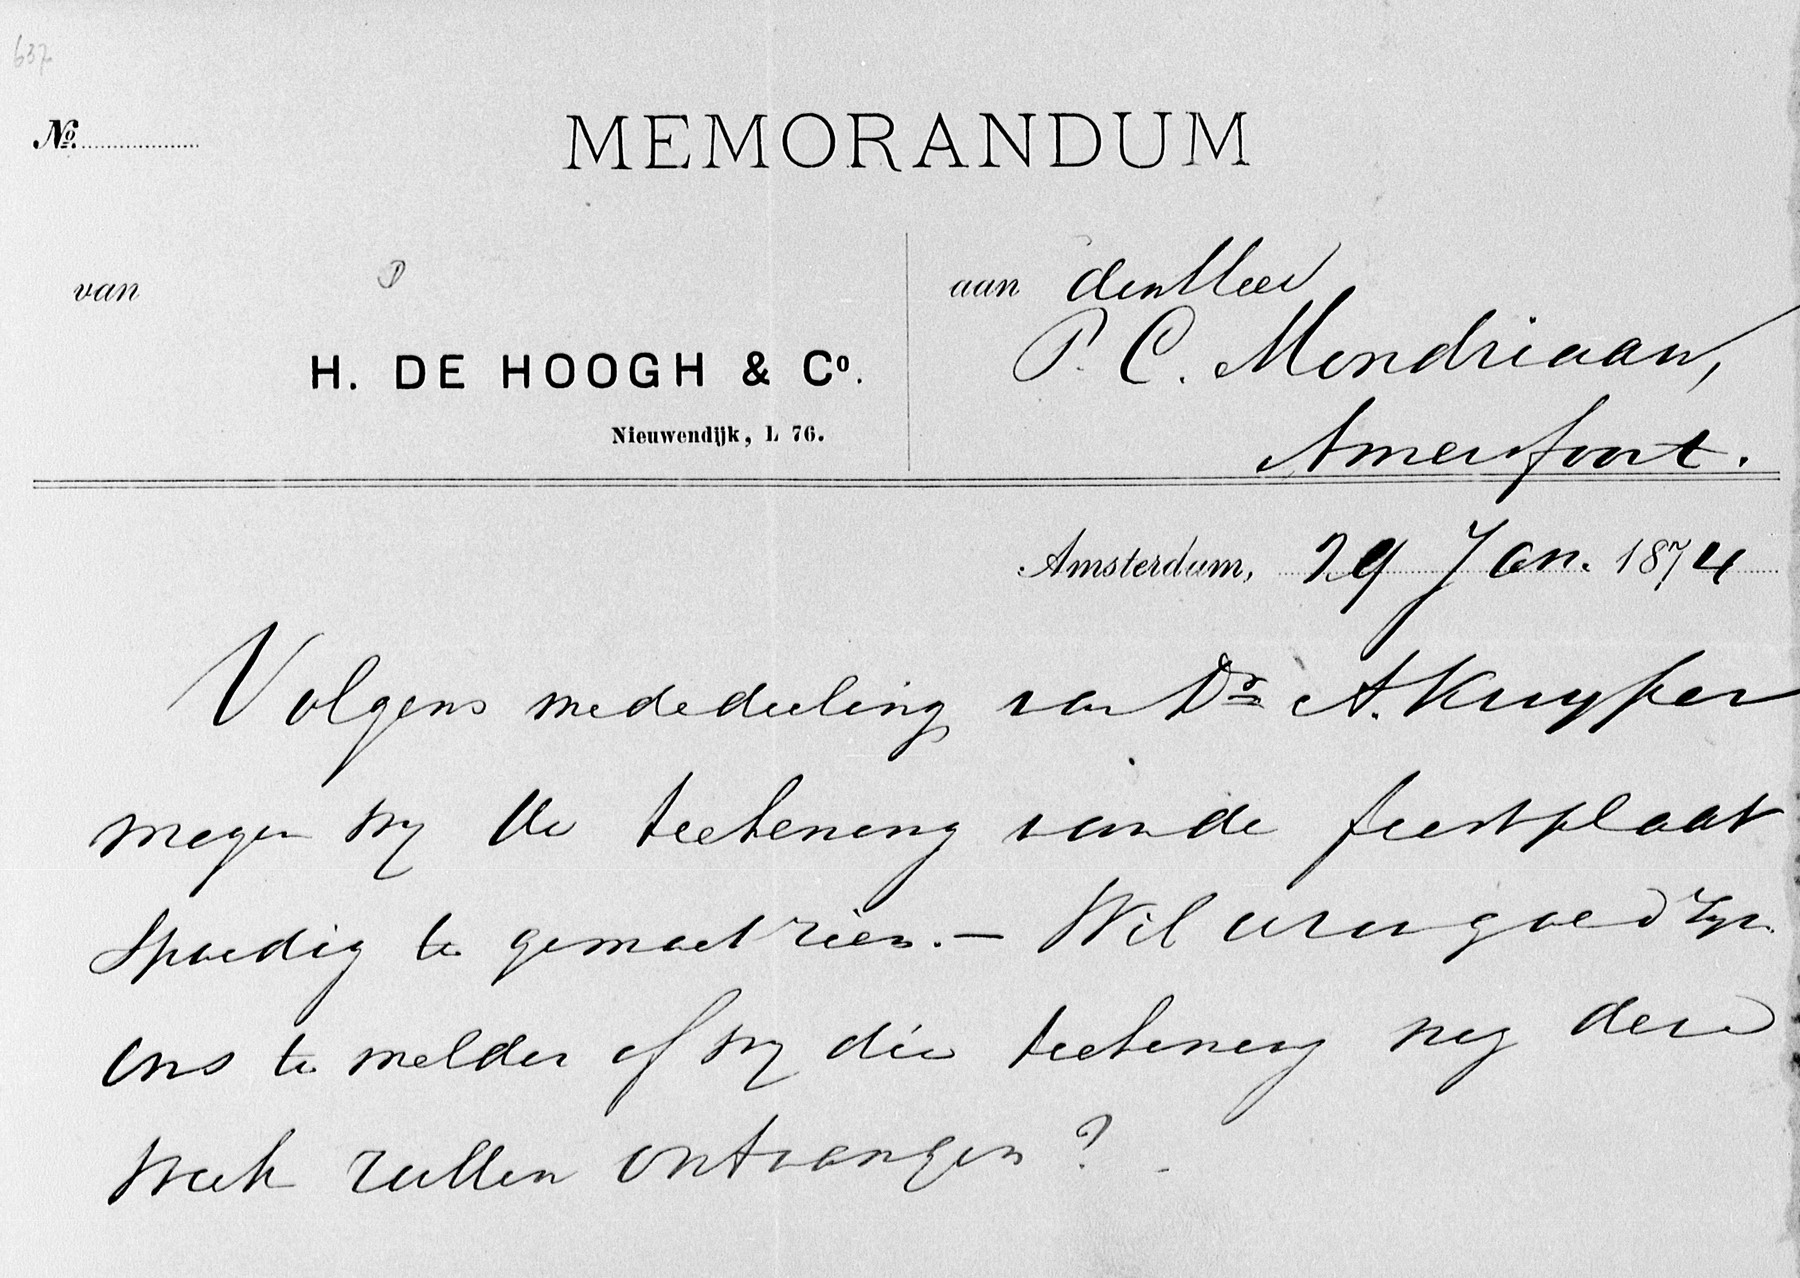 637
Nº.
MEMORANDUM
van
aan den Heer
H. DE HOOGH & Cº.
P. C. Mondriaan,
Nieuwendijk, L 76.
Amersfoort.
Amsterdam, 29 Jan. 1874
Volgens mededeeling van Dr A. Kuyper
mogen wij de teekening van de feestplaat
spoedig te gemoet zien. — Wil u zoo goed zijn
ons te melden of wij die teekening nog deze
week zullen ontvangen?